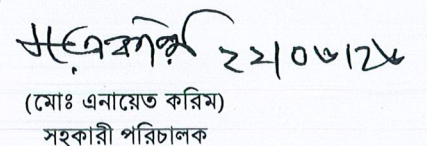 ২২।০৬।২৬
(মোঃ এনায়েত করিম)
সহকারী পরিচালক